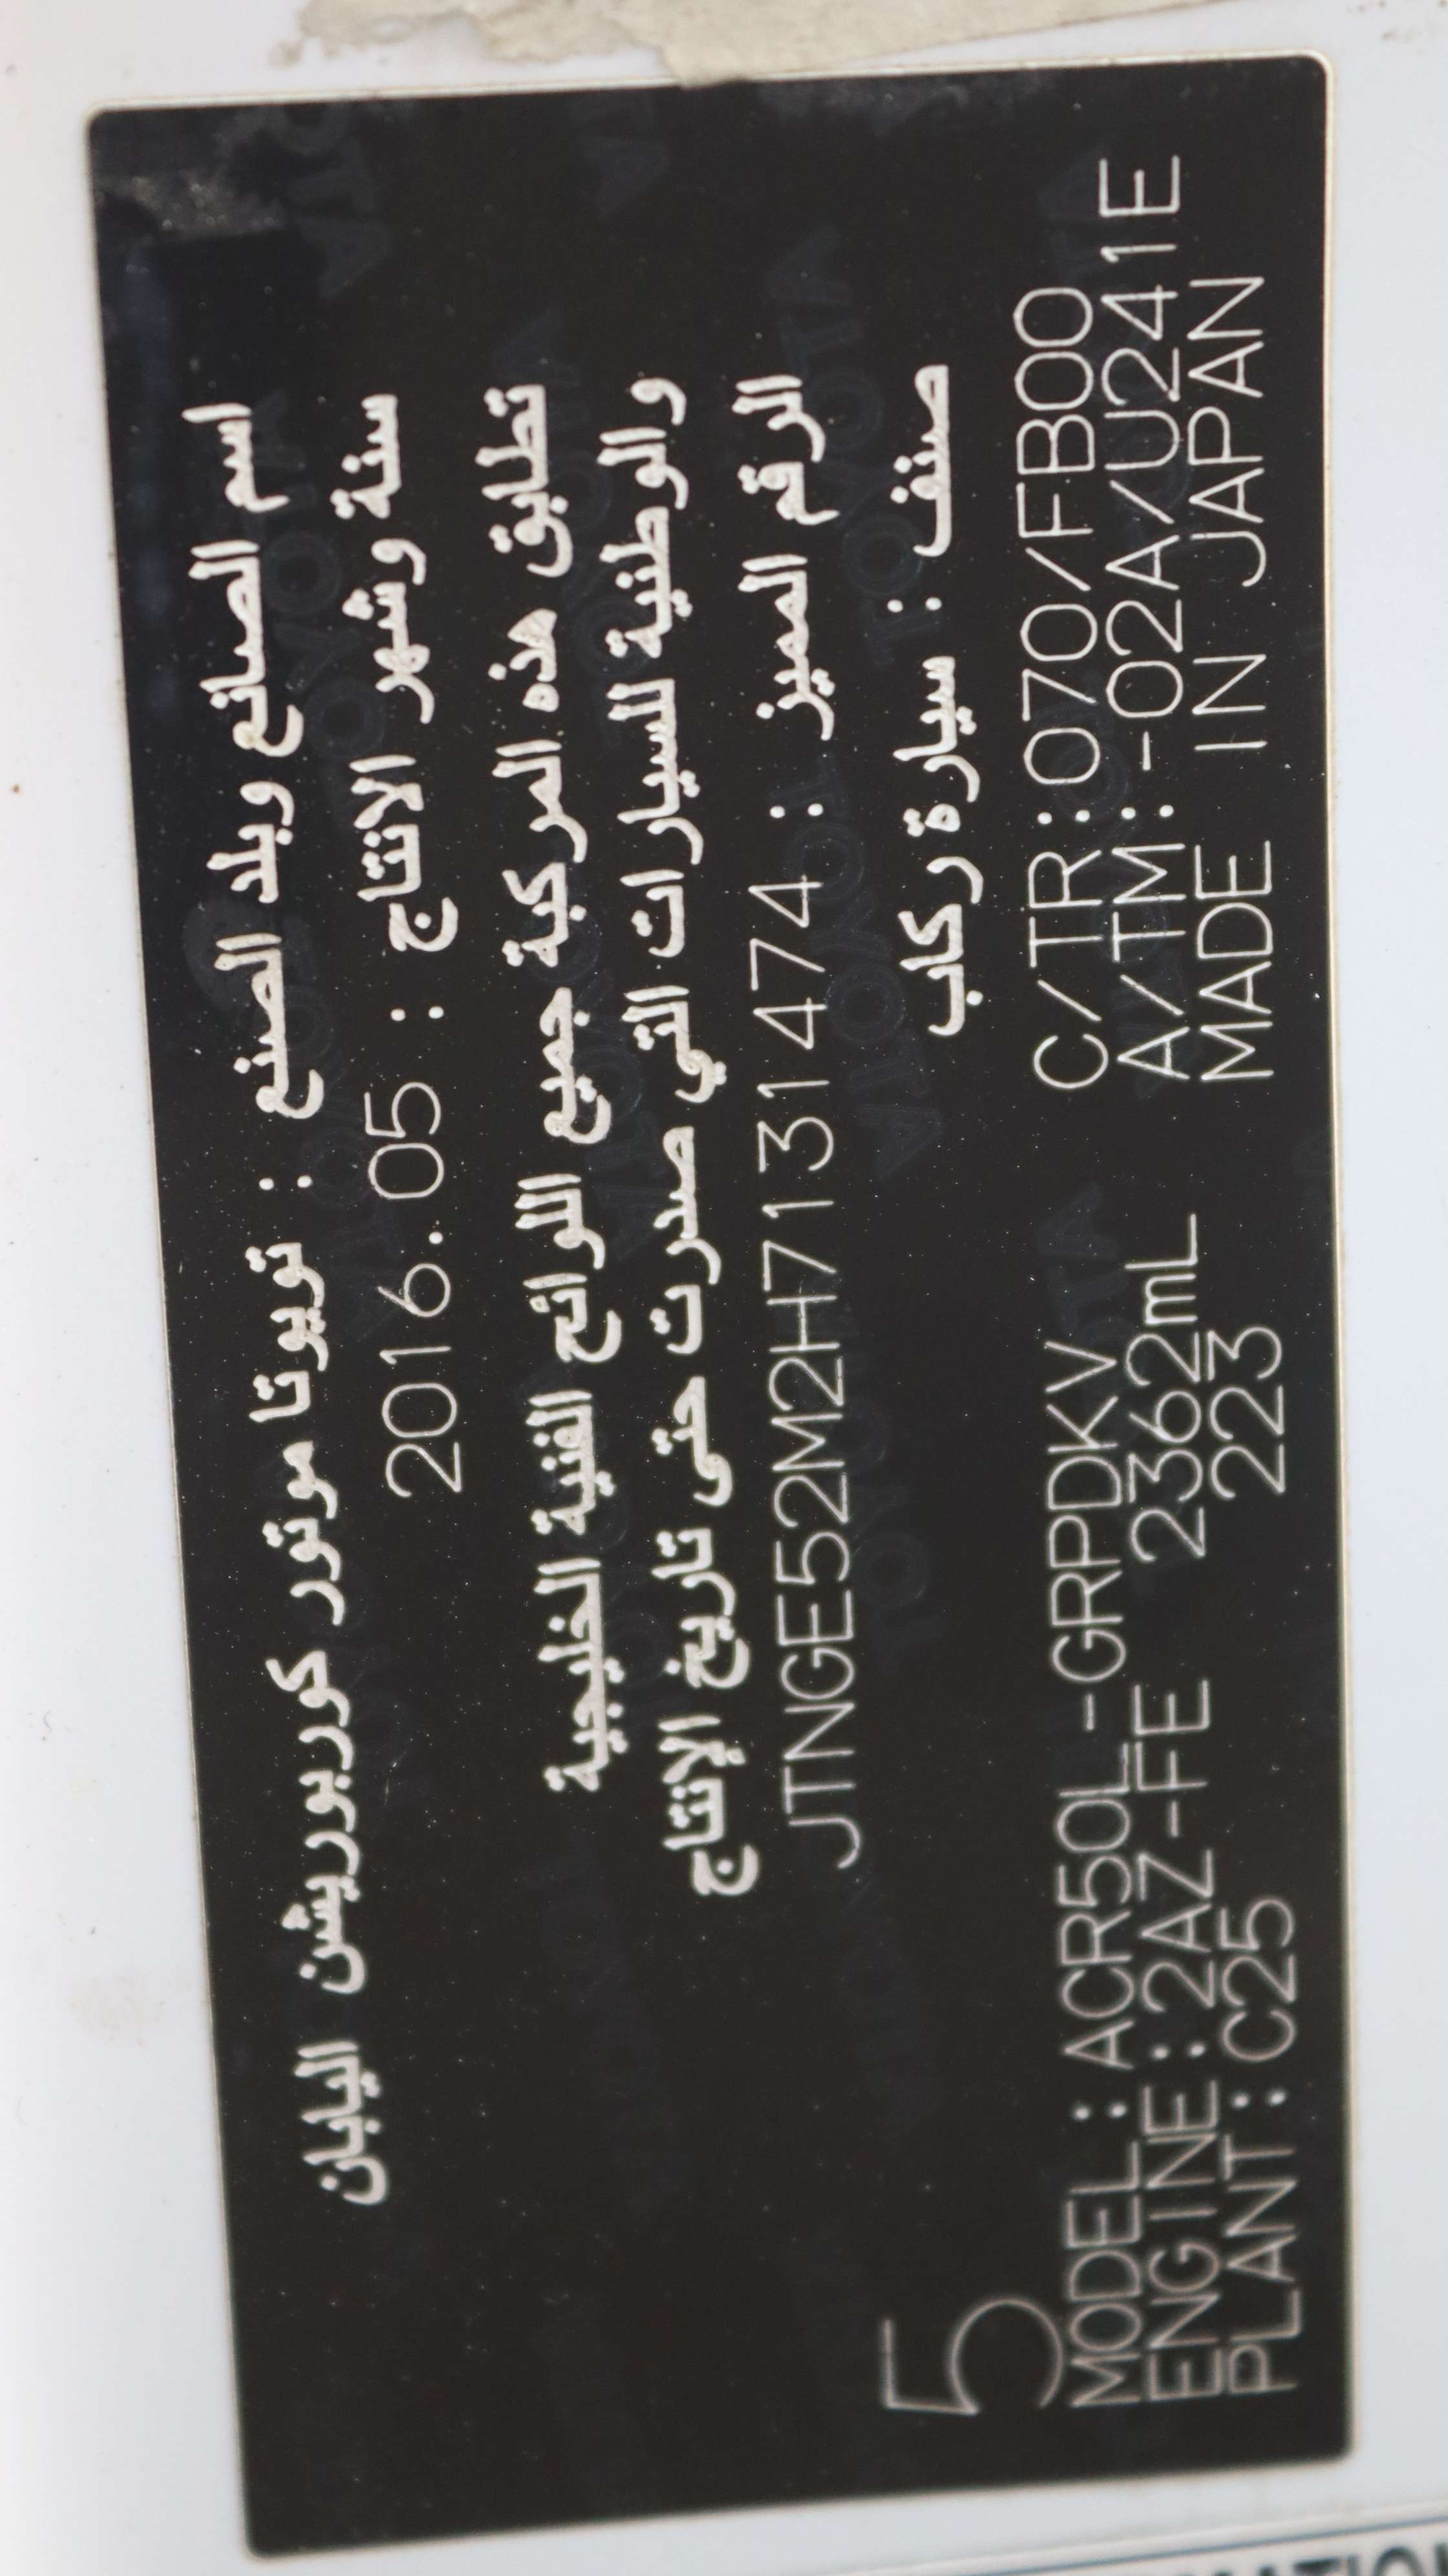 اسم الصانع وبلد الصنع : تويوتا موتور كوربوريشن اليابان
سنة وشهر الانتاج : 2016.05
تطابق هذه المركبة جميع اللوائح الفنية الخليجية
والوطنية للسيارات التي صدرت حتى تاريخ الإنتاج
الرقم المميز : JTNGE52M2H7131474
صنف : سيارة ركاب
5
MODEL:ACR50L-GRPDKV C/TR:070/FB00
ENGINE:2AZ-FE 2362mL A/TM:-02A/U241E
PLANT:C25 223 MADE IN JAPAN